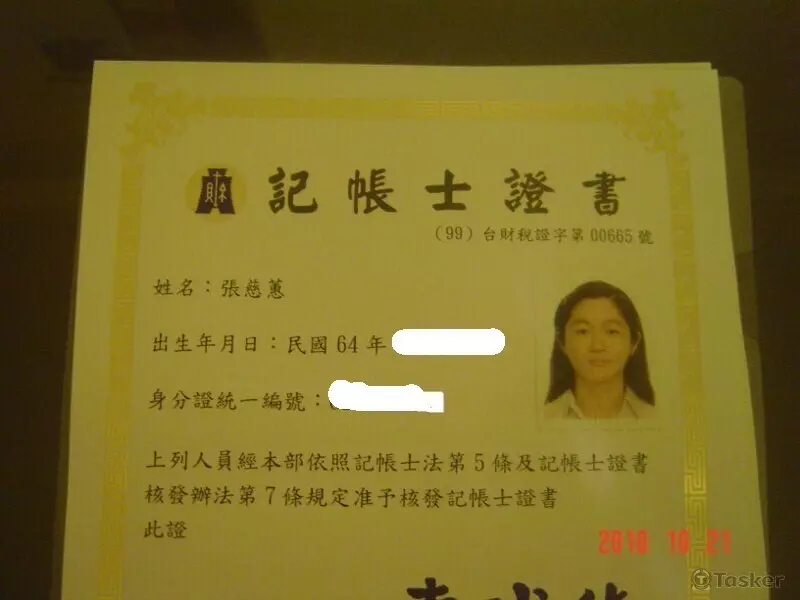 財
記帳士證書
(99) 台財稅證字第 00665 號
姓名：張慈蕙
出生年月日：民國 64 年
身分證統一編號：
上列人員經本部依照記帳士法第 5 條及記帳士證書
核發辦法第 7 條規定准予核發記帳士證書
此證
2010 10 21
Tasker